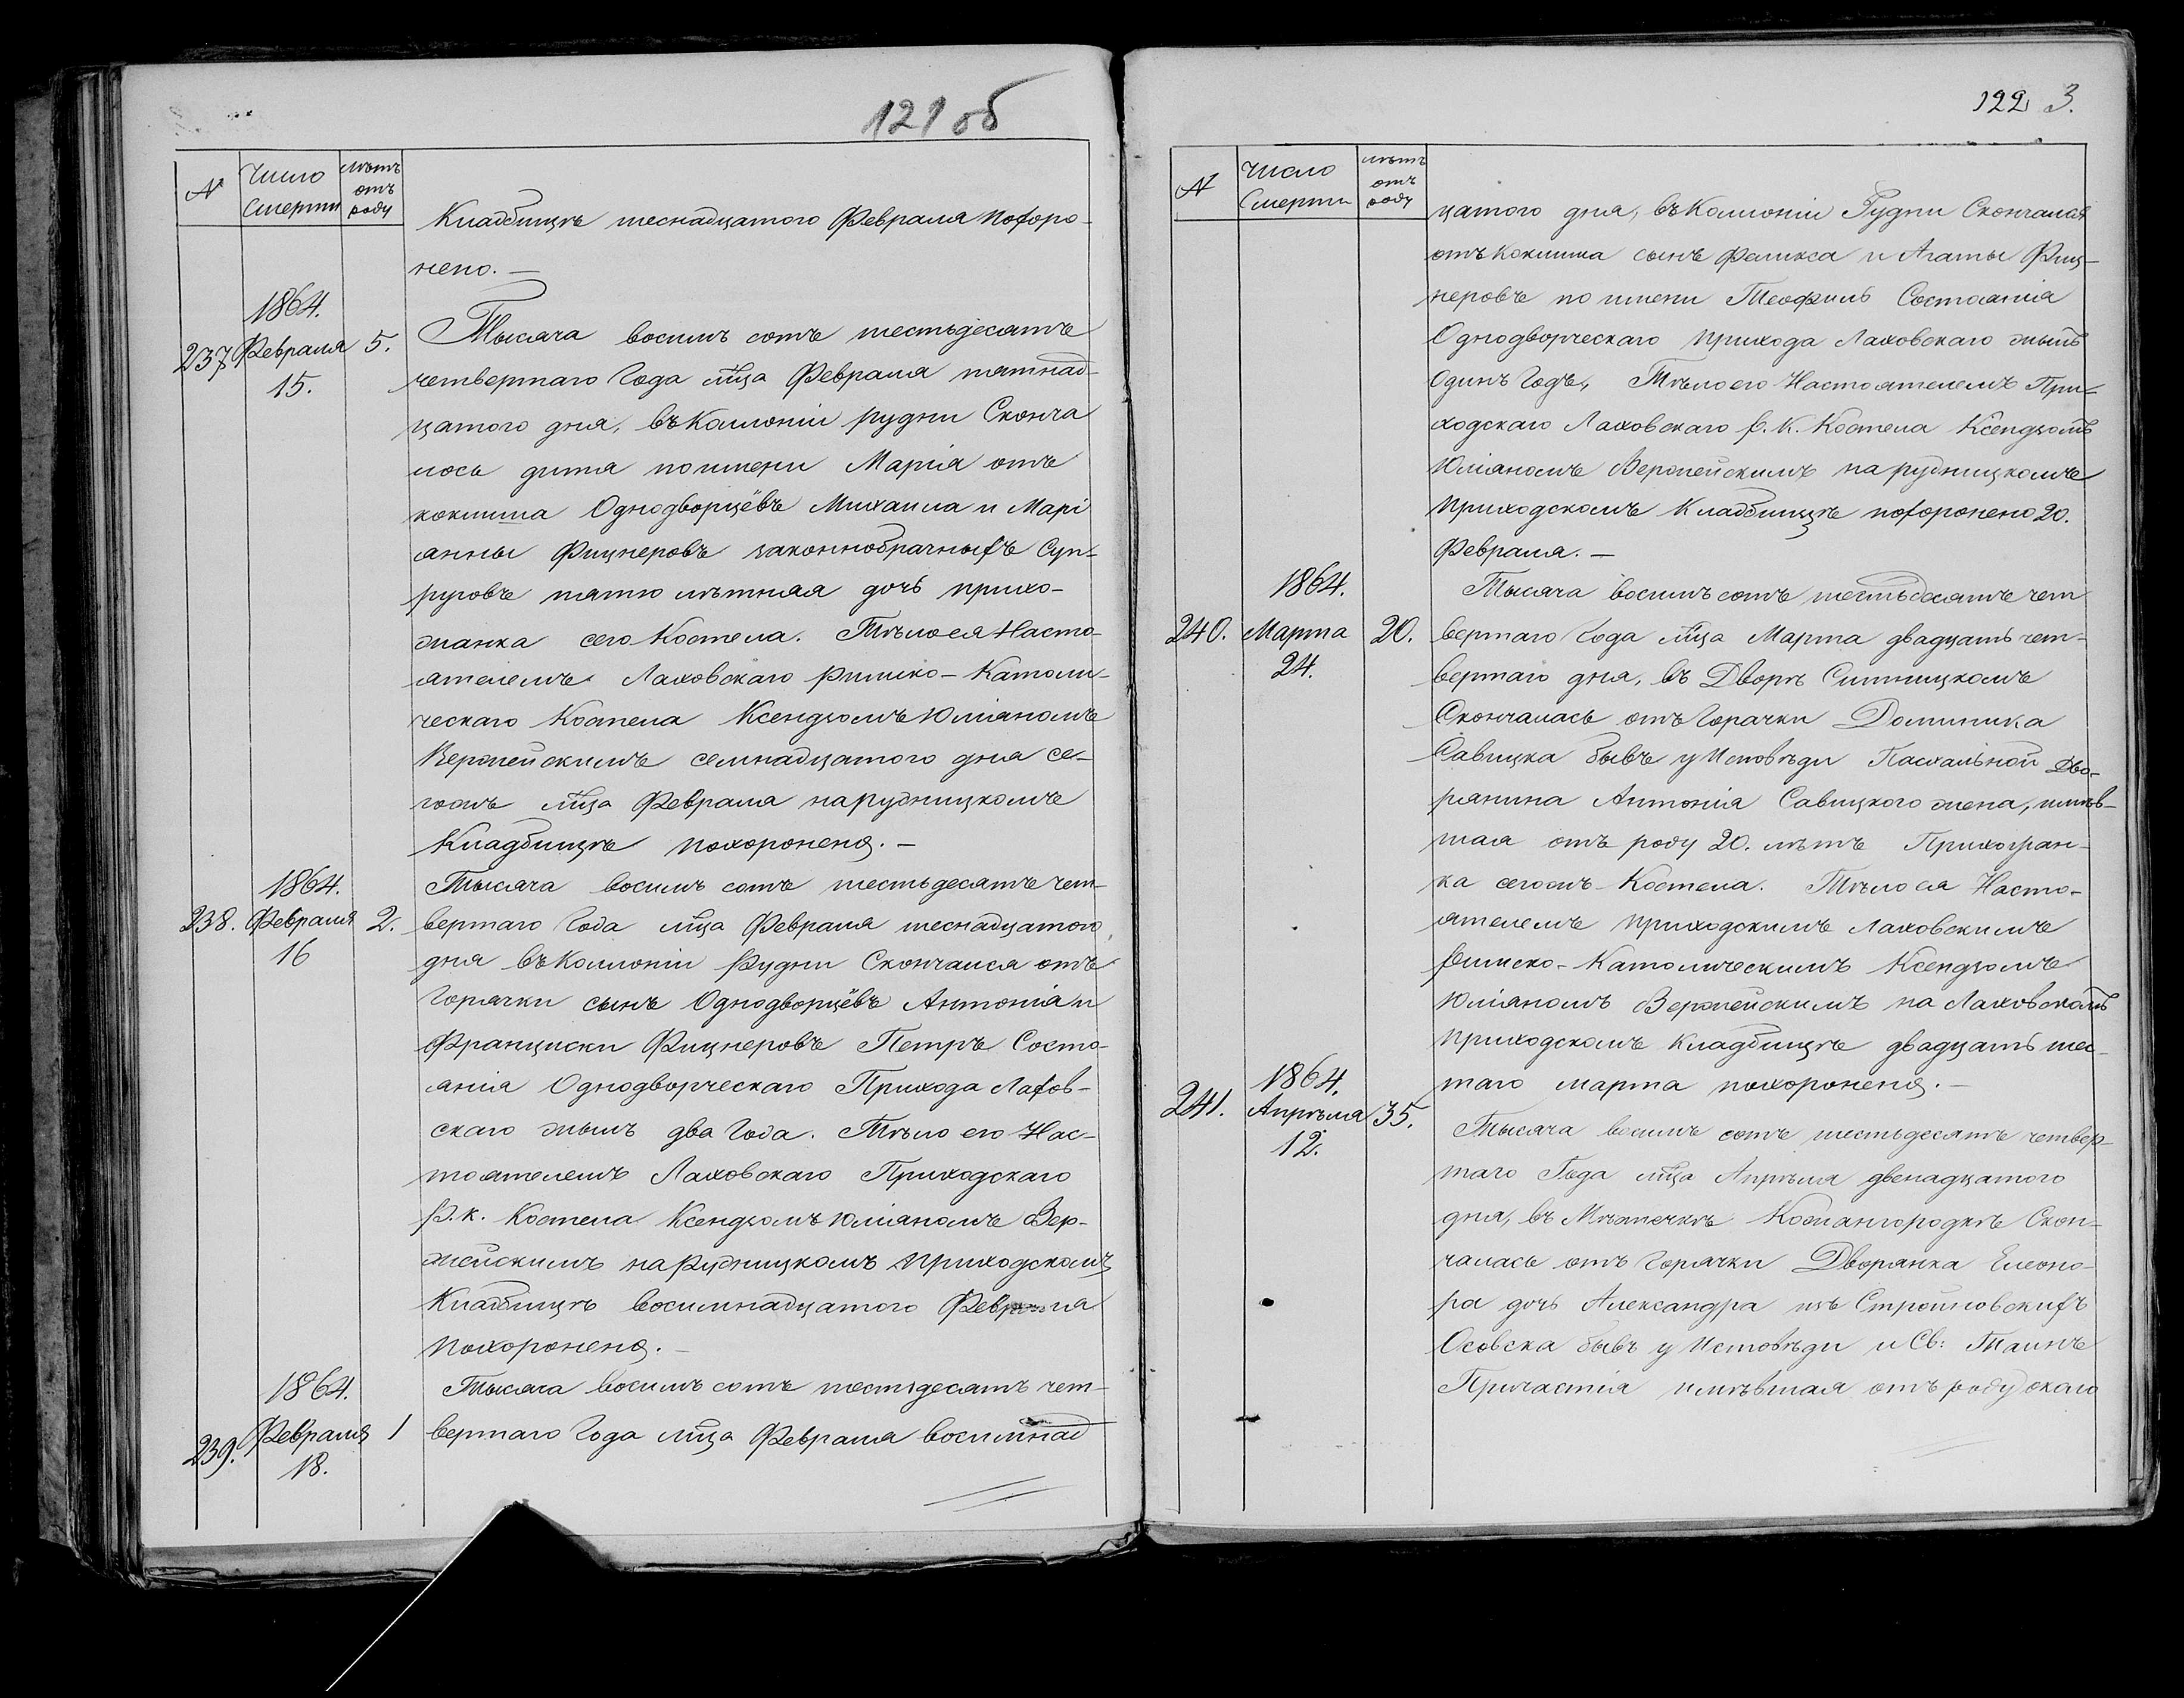 121 об
N
Число
Смерти
лѣтъ
отъ
роду
Кладбищѣ шеснадцатого Февраля похоро-
нено. —
1864.
237 Февраля 5.
15.
Тысяча восимъ сотъ шестьдесятъ
четвертаго Года м͠ца Февраля пятнад-
цатого дня, въ Коллоніи рудни Сконча
лось дитя по имени Марія отъ
коклюша Однодворцёвъ Михаила и Марі
анны Фицнеровъ законнобрачныхъ Суп-
руговъ пятю лѣтняя дочь прихо-
жанка сего Костела. Тѣло ея Насто-
ятелемъ Лаховскаго Римско-Католи-
ческаго Костела Ксендзомъ Юліаномъ
Вержейскимъ семнадцатого дня се-
гожъ м͠ца Февраля на рудницкомъ
Кладбищѣ похоронено. —
1864.
238. Февраля 2.
16
Тысяча восимъ сотъ шестьдесятъ чет-
вертаго Года м͠ца Февраля шеснадцатого
дня въ Коллоніи Рудни Скончался отъ
Горячки сынъ Однодворцёвъ Антонія и
Франциски Фицнеровъ Петръ Состо-
янія Однодворческаго Прихода Лахов-
скаго жылъ два Года. Тѣло его Нас-
тоятелемъ Лаховскаго Приходскаго
Р. К. Костела Ксендзомъ Юліаномъ Вер-
жейскимъ на Рудницкомъ Приходскомъ
Кладбищѣ восимнадцатого Февраля
похоронено. —
1864.
239. Февраля 1
18.
Тысяча восимъ сотъ шестьдесятъ чет-
вертаго Года м͠ца Февраля восимнад
122 3.
N
Число
Смерти
лѣтъ
отъ
роду
цатого дня, въ Коллоніи Рудни Скончался
отъ коклюша сынъ Феликса и Агаты Фиц-
неровъ по имени Теофиль Состоянія
Однодворческаго Прихода Лаховскаго жылъ
Одинъ Годъ, Тѣло его Настоятелемъ При-
ходскаго Лаховскаго Р. К. Костела Ксендзомъ
Юліаномъ Вержейскимъ на рудницкомъ
Приходскомъ Кладбищѣ похоронено 20.
Февраля. —
1864.
240. Марта 20.
24.
Тысяча восимъ сотъ шестьдесятъ чет
вертаго Года м͠ца Марта двадцать чет-
вертаго дня, въ Дворѣ Ситницкомъ
Скончалась отъ Горячки Доминика
Савицка бывъ у Исповѣди Пасхальной Дво-
рянина Антонія Савицкого жена, имѣв-
шая отъ роду 20. лѣтъ Прихожан-
ка сегожъ Костела. Тѣло ея Насто-
ятелемъ Приходскимъ Лаховскимъ
Римско-Католическимъ Ксендзомъ
Юліаномъ Вержейскимъ на Лаховскомъ
Приходскомъ Кладбищѣ двадцать шес-
таго марта похоронено. —
1864.
241. Апрѣля 35.
12.
Тысяча восимъ сотъ шестьдесятъ четвер-
таго Года м͠ца Апрѣля двенадцатого
дня, въ Мѣстечкѣ Кожангородкѣ Скон-
чалась отъ Горячки Дворянка Елеоно-
ра дочь Александра изъ Стройновскихъ
Осовска бывъ у Исповѣди и Св: Таинъ
Причастія имѣвшая отъ роду